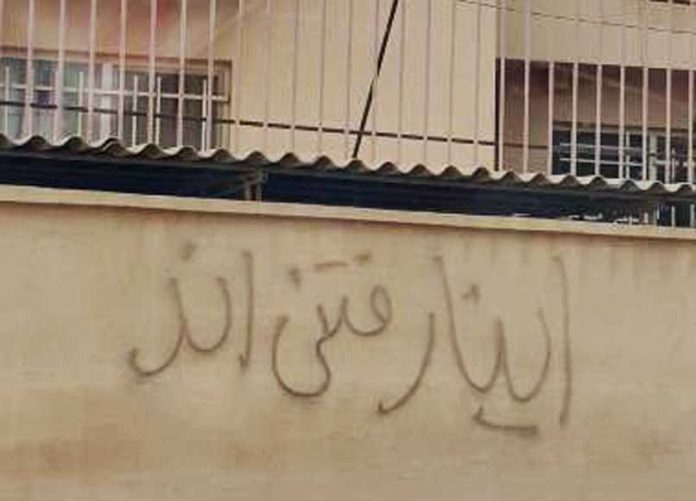 اینا رفتنی اند